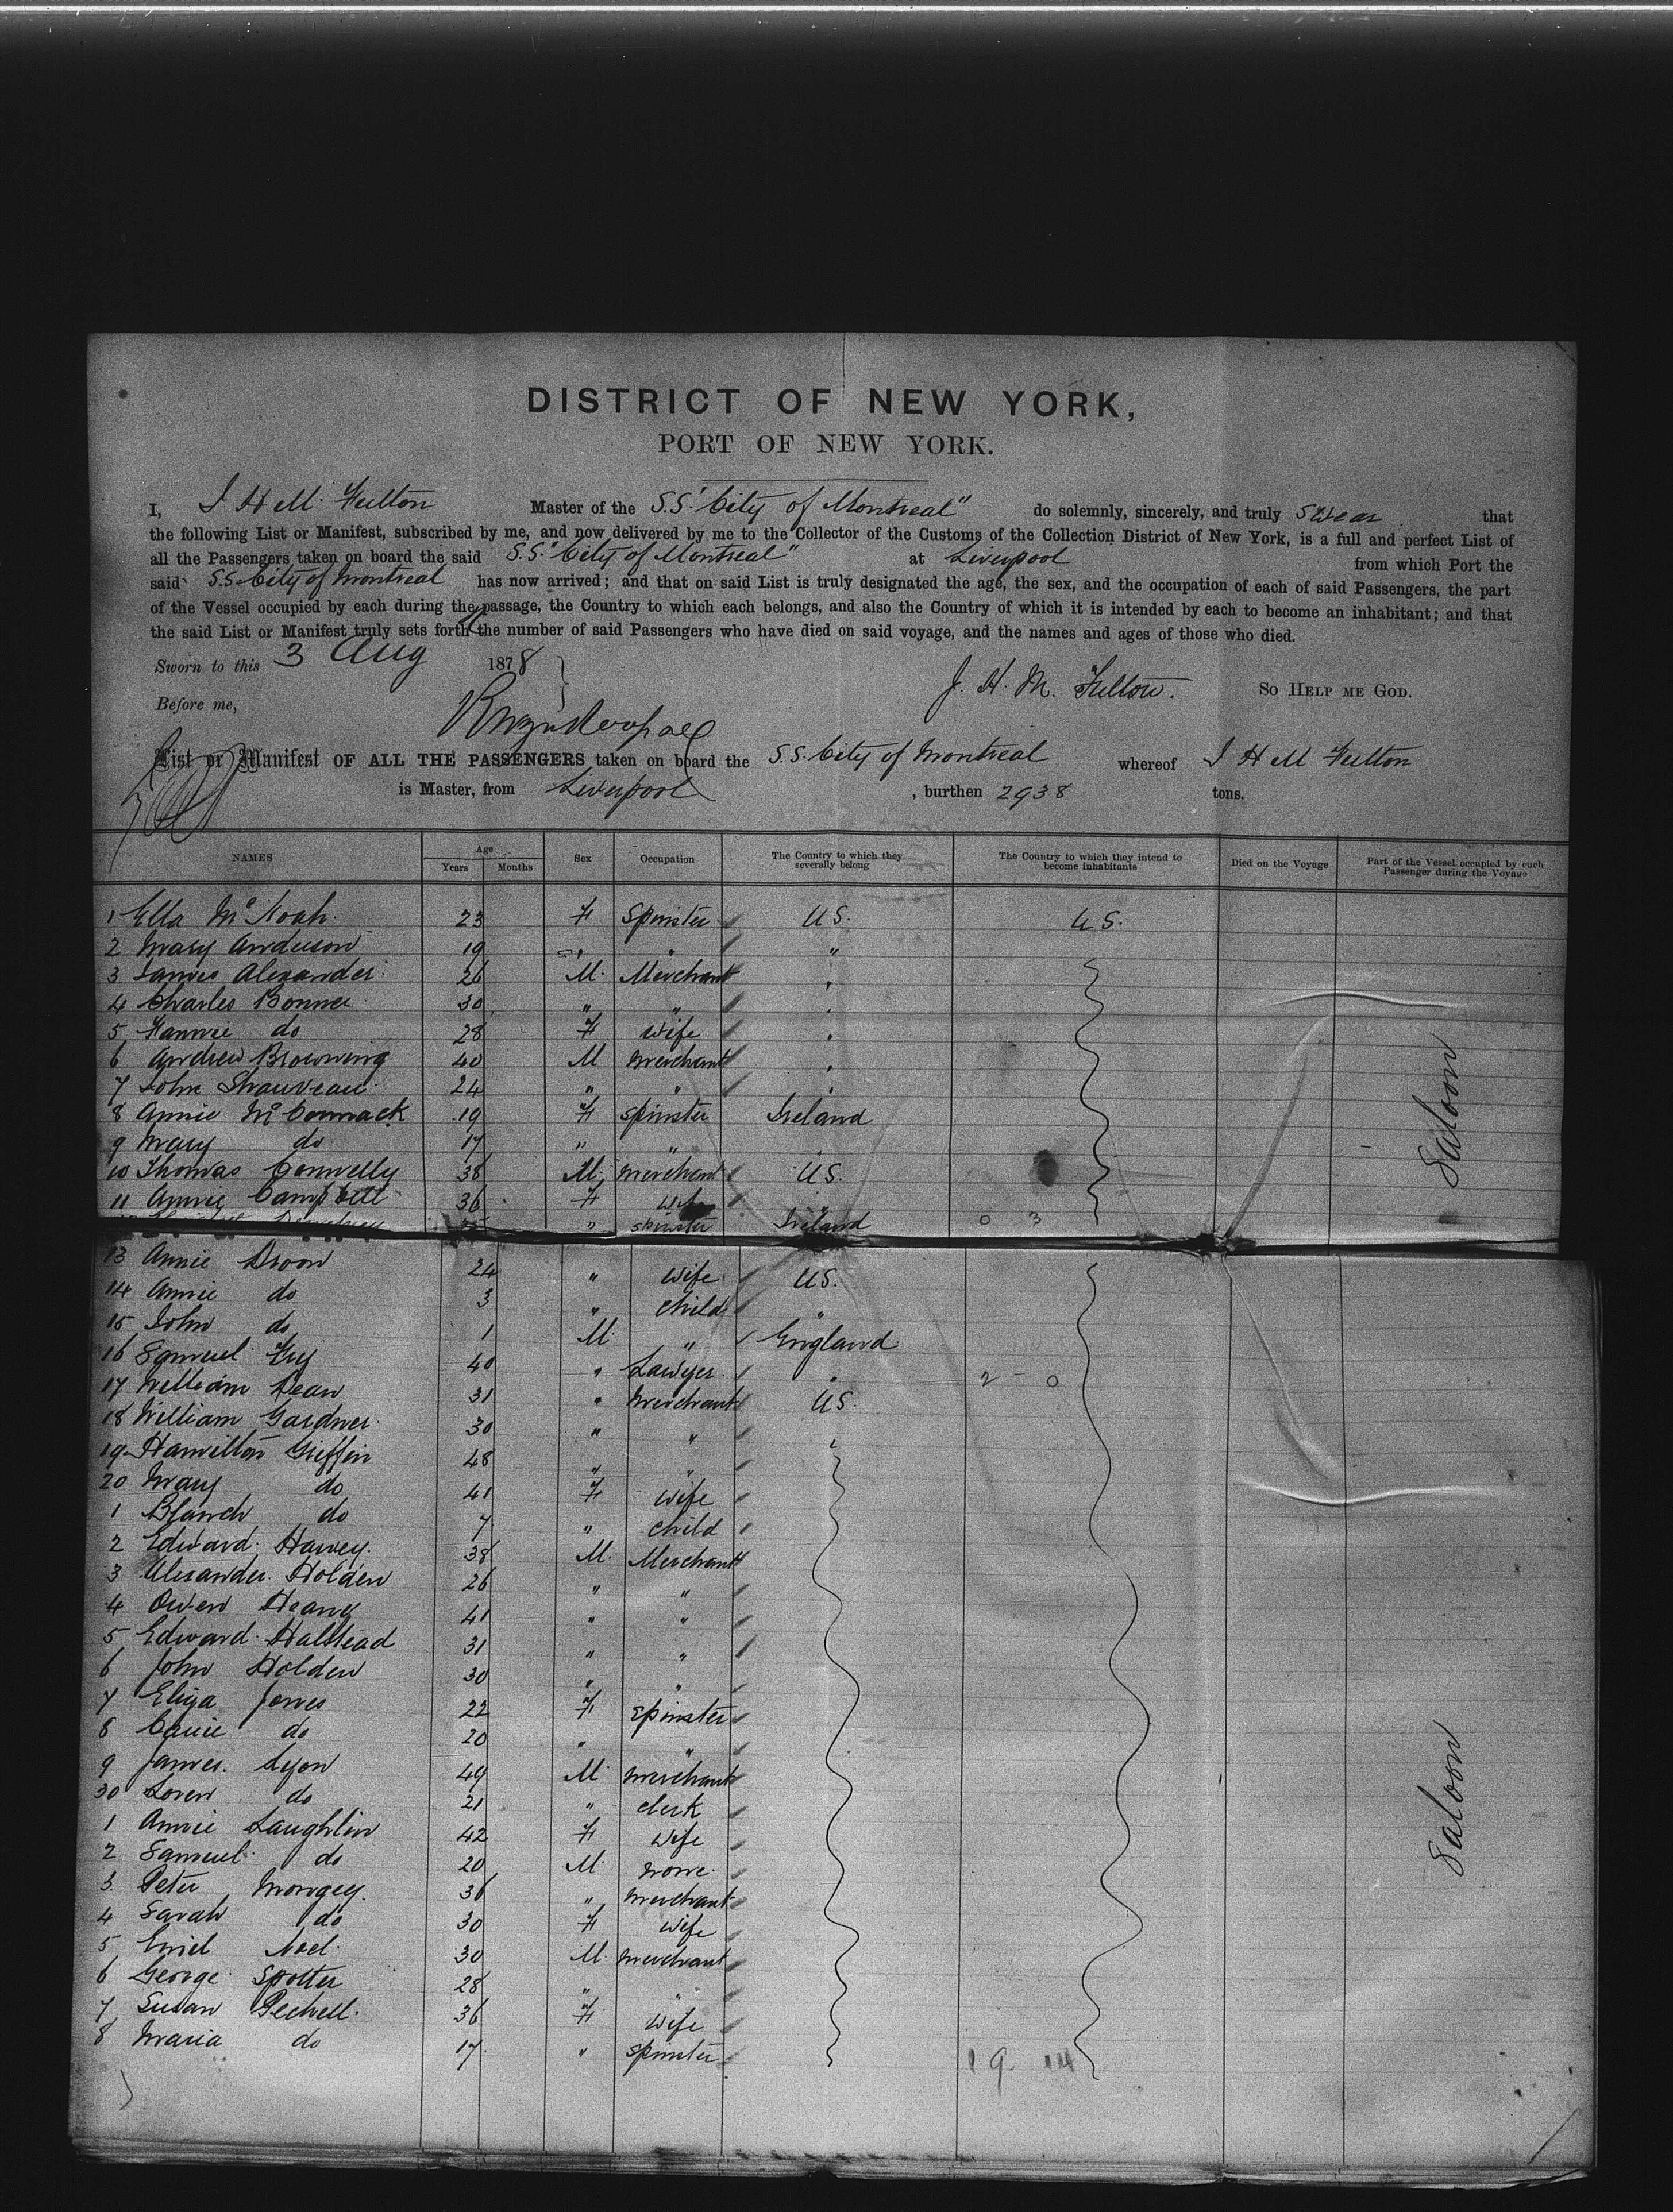 DISTRICT OF NEW YORK,
PORT OF NEW YORK.
I, J H M. Fulton Master of the S.S. "City of Montreal" do solemnly, sincerely, and truly swear that
the following List or Manifest, subscribed by me, and now delivered by me to the Collector of the Customs of the Collection District of New York, is a full and perfect List of
all the Passengers taken on board the said S.S. "City of Montreal" at Liverpool from which Port the
said S.S. City of Montreal has now arrived; and that on said List is truly designated the age, the sex, and the occupation of each of said Passengers, the part
of the Vessel occupied by each during the passage, the Country to which each belongs, and also the Country of which it is intended by each to become an inhabitant; and that
the said List or Manifest truly sets forth the number of said Passengers who have died on said voyage, and the names and ages of those who died.
Sworn to this 3 Aug 1878
J. H. M. Fulton. SO HELP ME GOD.
Before me,
List or Manifest OF ALL THE PASSENGERS taken on board the S.S. City of Montreal whereof J H M Fulton
is Master, from Liverpool , burthen 2938 tons.
NAMES Age Years Months Sex Occupation The Country to which they severally belong The Country to which they intend to become inhabitants Died on the Voyage Part of the Vessel occupied by each Passenger during the Voyage
1 Ella Mc 23 F Spinster U S. U S.
2 Mary Anderson 19 " " "
3 James Alexander 26 M. Merchant "
4 Charles Bonner 30 " " "
5 Fannie do 28 F Wife "
6 Andrew Browning 40 M Merchant "
7 John 24 " " "
8 Annie McCormack 19 F Spinster Ireland
9 Mary do 17 " " "
10 Thomas Connelly 38 M. Merchant U S.
11 Annie Campbell 36 F Wife "
" Spinster Ireland 0 3
Saloon
13 Annie Droon 24 " Wife U S.
14 Annie do 3 " Child "
15 John do 1 M. " England
16 Samuel Fry 40 " Lawyer " 2 - 0
17 William Dean 31 " Merchant U S.
18 William Gardner 30 " "
19 Hamilton Griffin 48 " "
20 Mary do 41 F Wife
1 Blanch do 7 " Child
2 Edward Harvey 38 M. Merchant
3 Alexander Holden 26 " "
4 Owen 41 " "
5 Edward Halstead 31 " "
6 John Holden 30 " "
7 Eliza Jones 22 F Spinster
8 Carrie do 20 " "
9 James Lyon 49 M. Merchant
30 Loren do 21 " Clerk
1 Annie Laughlin 42 F Wife
2 Samuel do 20 M. None
3 Peter Mongey 36 " Merchant
4 Sarah do 30 F Wife
5 Emil Noel 30 M. Merchant
6 George Spotter 28 " "
7 Susan Pechell 36 F Wife
8 Maria do 17 " Spinster 19 14
Saloon